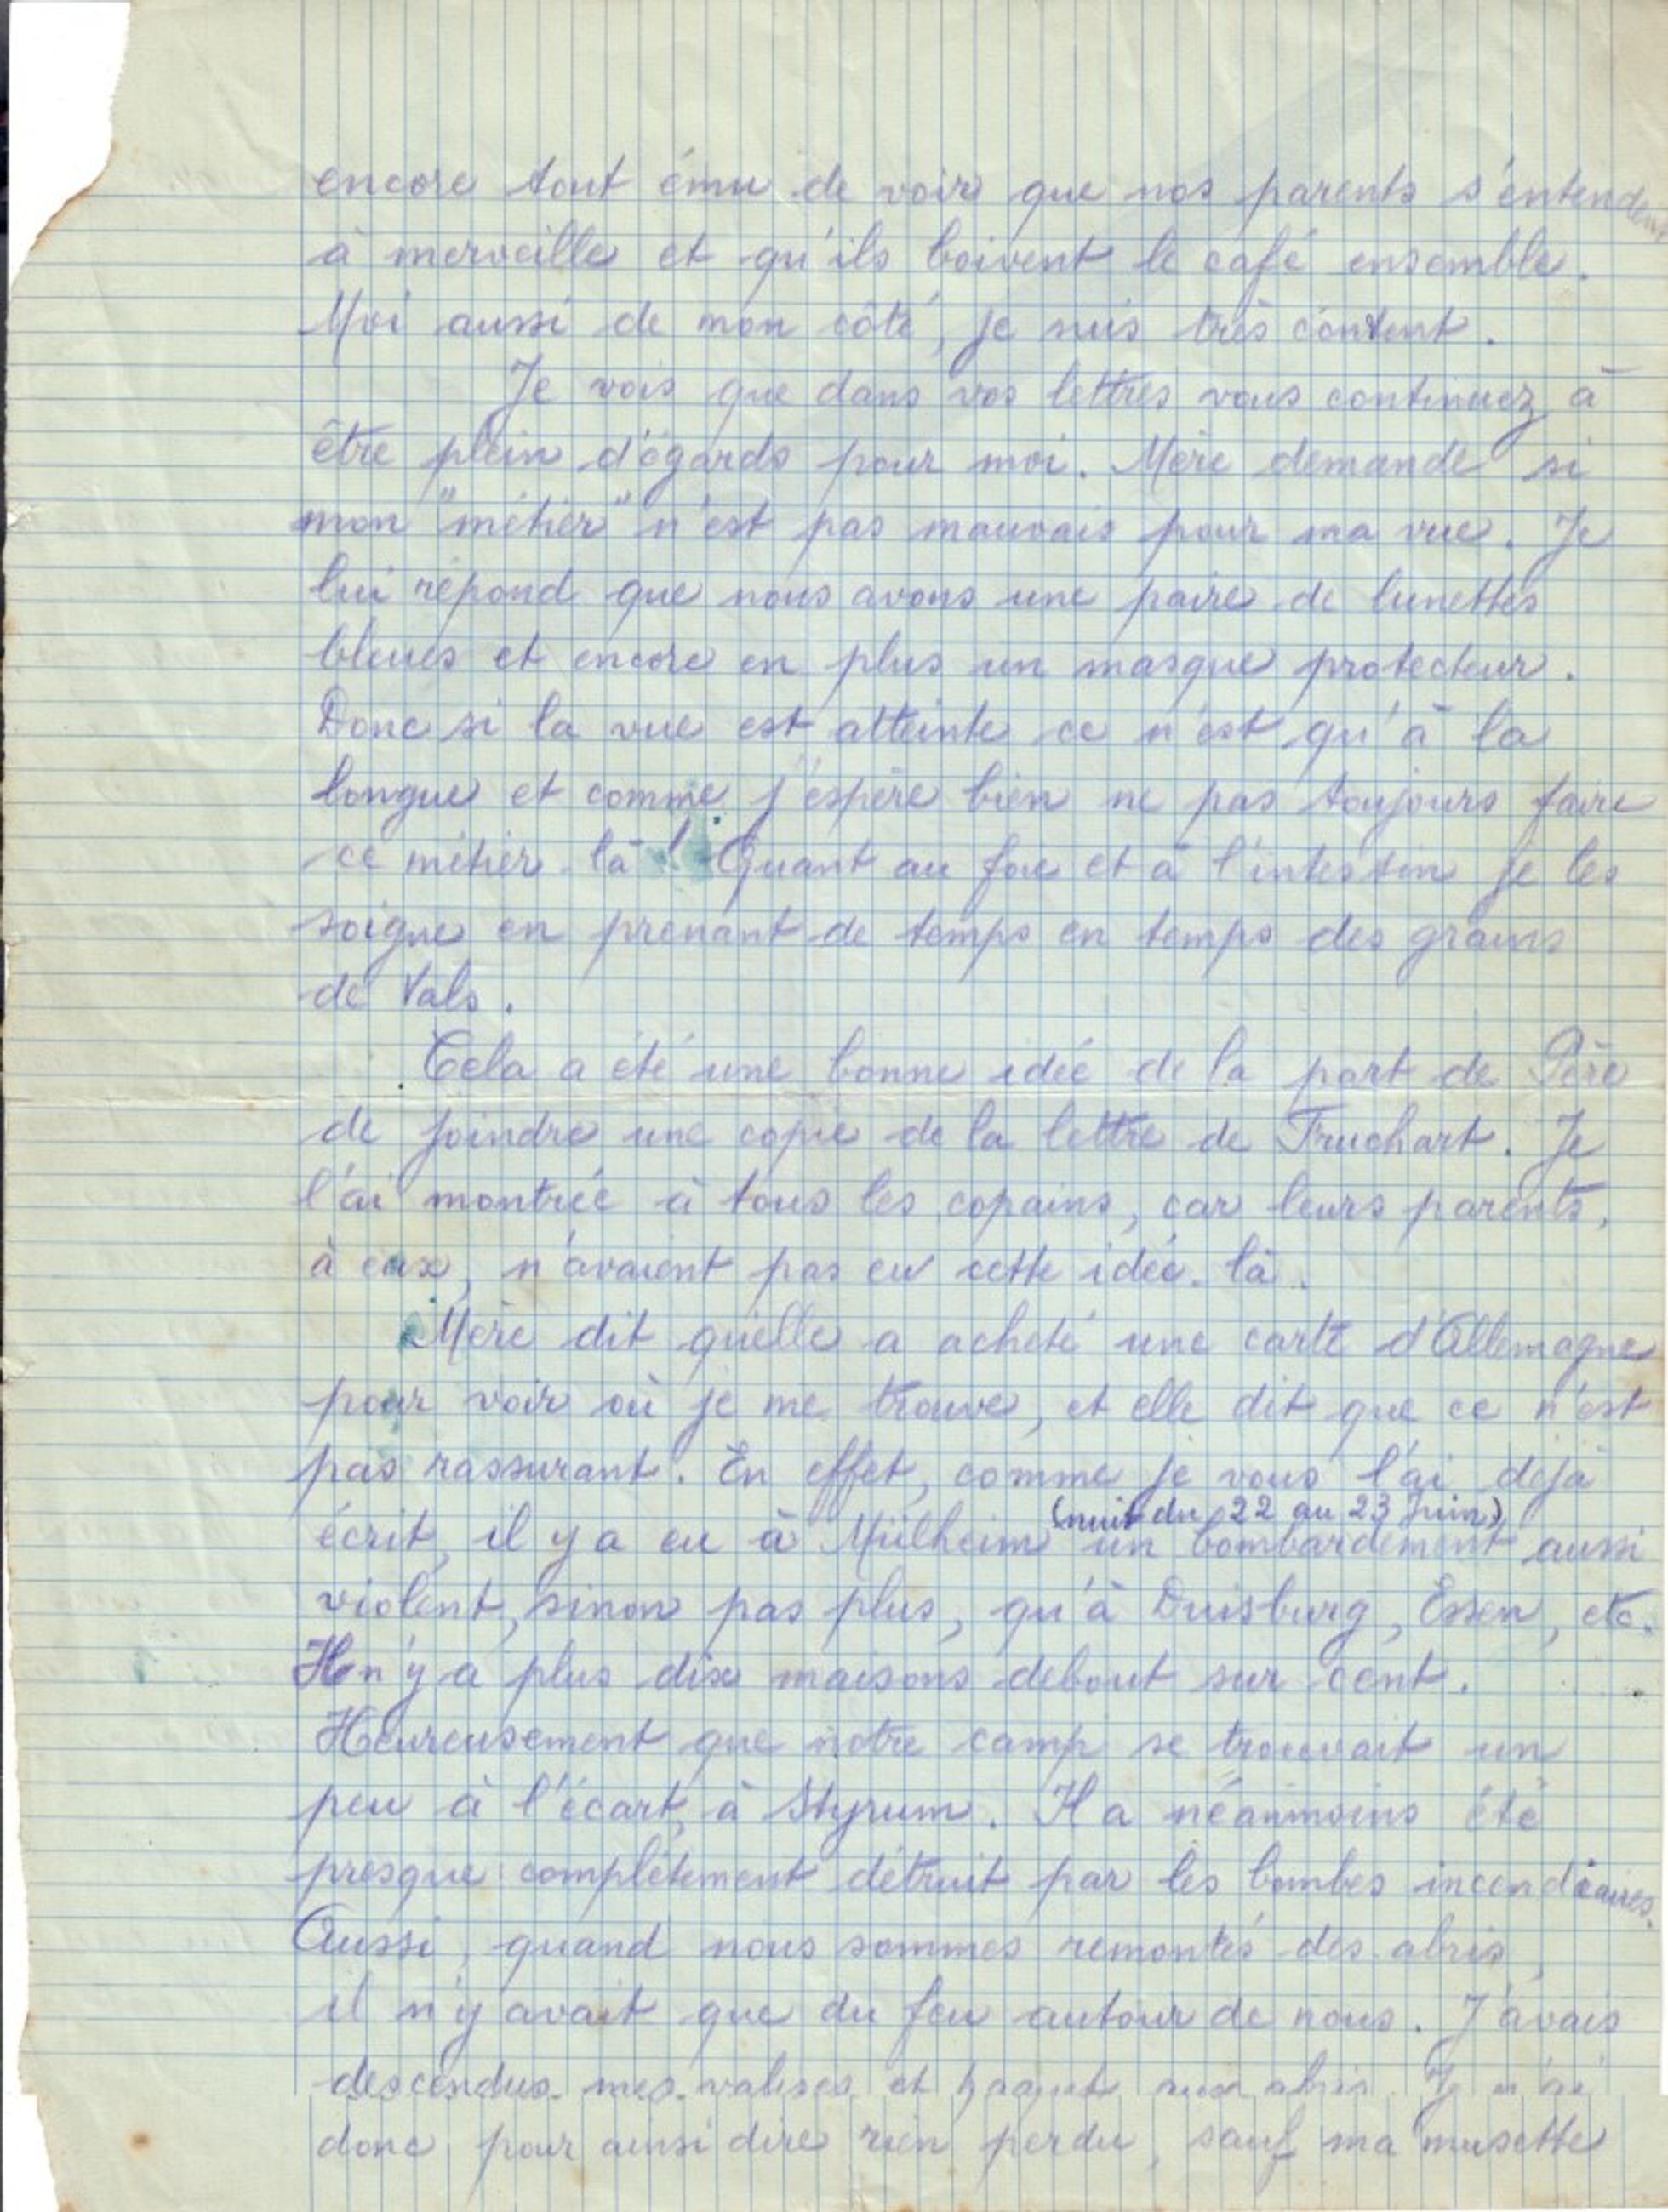 encore tout ému de voir que nos parents s'entendent
à merveille et qu'ils boivent le café ensemble.
Moi aussi de mon côté, je suis très content.
Je vois que dans vos lettres vous continuez à
être plein d'égards pour moi. Mère demande si
mon "métier" n'est pas mauvais pour ma vue. Je
lui répond que nous avons une paire de lunettes
bleues et encore en plus un masque protecteur.
Donc si la vue est atteinte ce n'est qu'à la
longue et comme j'espère bien ne pas toujours faire
ce métier-là ! Quant au foie et à l'intestin je les
soigne en prenant de temps en temps des grains
de Vals.
Cela a été une bonne idée de la part de Père
de joindre une copie de la lettre de Fruchart. Je
l'ai montrée à tous les copains, car leurs parents,
à eux, n'avaient pas eu cette idée-là.
Mère dit qu'elle a acheté une carte d'Allemagne
pour voir où je me trouve, et elle dit que ce n'est
pas rassurant. En effet, comme je vous l'ai déjà
(nuit du 22 au 23 Juin)
écrit, il y a eu à Mülheim un bombardement aussi
violent, sinon pas plus, qu'à Duisburg, Essen, etc.
Il n'y a plus dix maisons debout sur cent.
Heureusement que notre camp se trouvait un
peu à l'écart, à Styrum. Il a néanmoins été
presque complètement détruit par les bombes incendiaires.
Aussi, quand nous sommes remontés des abris,
il n'y avait que du feu autour de nous. J'avais
descendus mes valises et paquet aux abris. Je n'ai
donc pour ainsi dire rien perdu, sauf ma musette